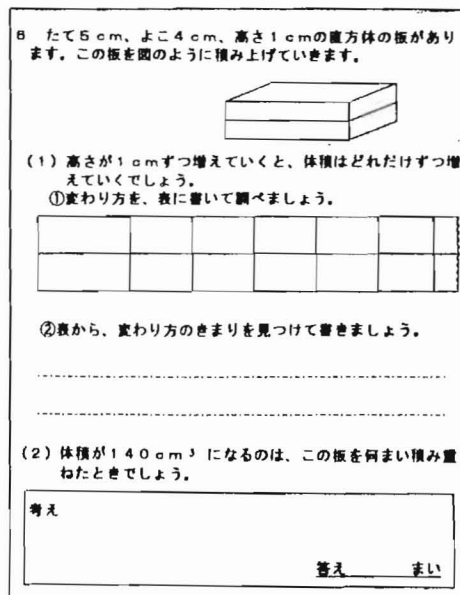 6 たて5cm、よこ4cm、高さ1cmの直方体の板があり
ます。この板を図のように積み上げていきます。
(1)高さが1cmずつ増えていくと、体積はどれだけずつ増
えていくでしょう。
①変わり方を、表に書いて調べましょう。
②表から、変わり方のきまりを見つけて書きましょう。
(2)体積が140cm³になるのは、この板を何まい積み重
ねたときでしょう。
考え
答え まい